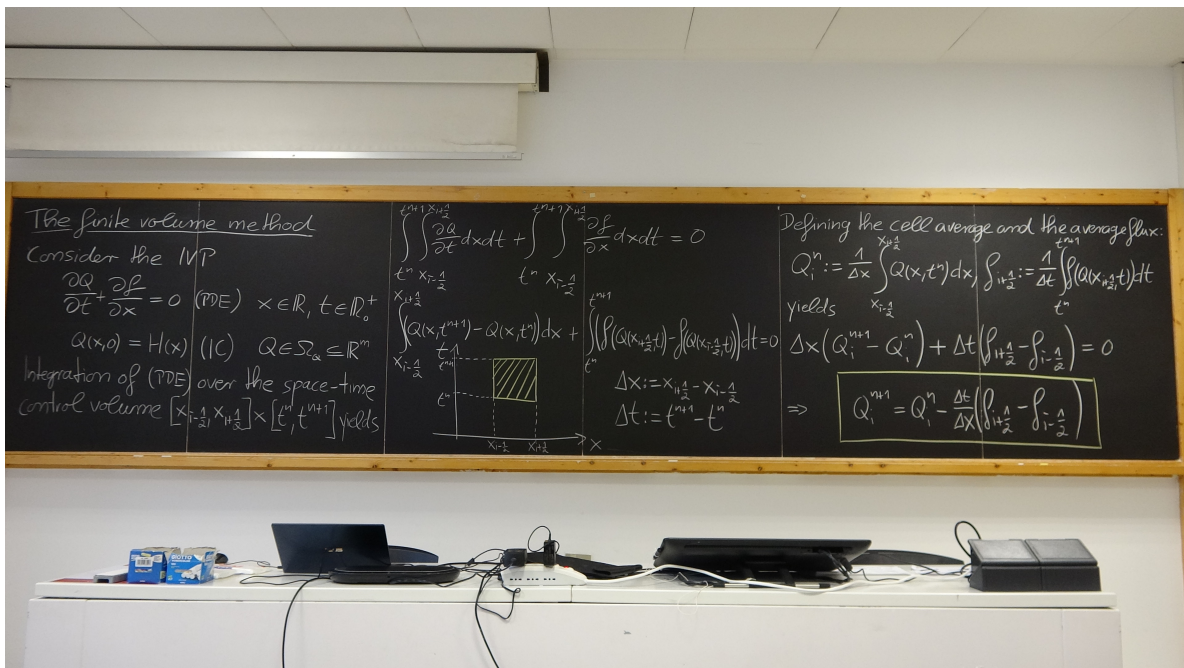 The finite volume method
Consider the IVP
∂Q/∂t + ∂f/∂x = 0 (PDE) x ∈ ℝ, t ∈ ℝ₀⁺
Q(x,0) = H(x) (IC) Q ∈ Ω_Q ⊆ ℝᵐ
Integration of (PDE) over the space-time
control volume [x_{i-1/2}, x_{i+1/2}] × [tⁿ, tⁿ⁺¹] yields
∫_{tⁿ}^{tⁿ⁺¹} ∫_{x_{i-1/2}}^{x_{i+1/2}} ∂Q/∂t dx dt + ∫_{tⁿ}^{tⁿ⁺¹} ∫_{x_{i-1/2}}^{x_{i+1/2}} ∂f/∂x dx dt = 0
∫_{x_{i-1/2}}^{x_{i+1/2}} (Q(x,tⁿ⁺¹) - Q(x,tⁿ)) dx + ∫_{tⁿ}^{tⁿ⁺¹} (f(Q(x_{i+1/2},t)) - f(Q(x_{i-1/2},t))) dt = 0
t
tⁿ⁺¹
tⁿ
x_{i-1/2} x_{i+1/2} x
Δx := x_{i+1/2} - x_{i-1/2}
Δt := tⁿ⁺¹ - tⁿ
Defining the cell average and the average flux:
Q_iⁿ := 1/Δx ∫_{x_{i-1/2}}^{x_{i+1/2}} Q(x,tⁿ) dx, f_{i+1/2} := 1/Δt ∫_{tⁿ}^{tⁿ⁺¹} f(Q(x_{i+1/2},t)) dt
yields
Δx (Q_iⁿ⁺¹ - Q_iⁿ) + Δt (f_{i+1/2} - f_{i-1/2}) = 0
⇒ Q_iⁿ⁺¹ = Q_iⁿ - Δt/Δx (f_{i+1/2} - f_{i-1/2})
GIOTTO